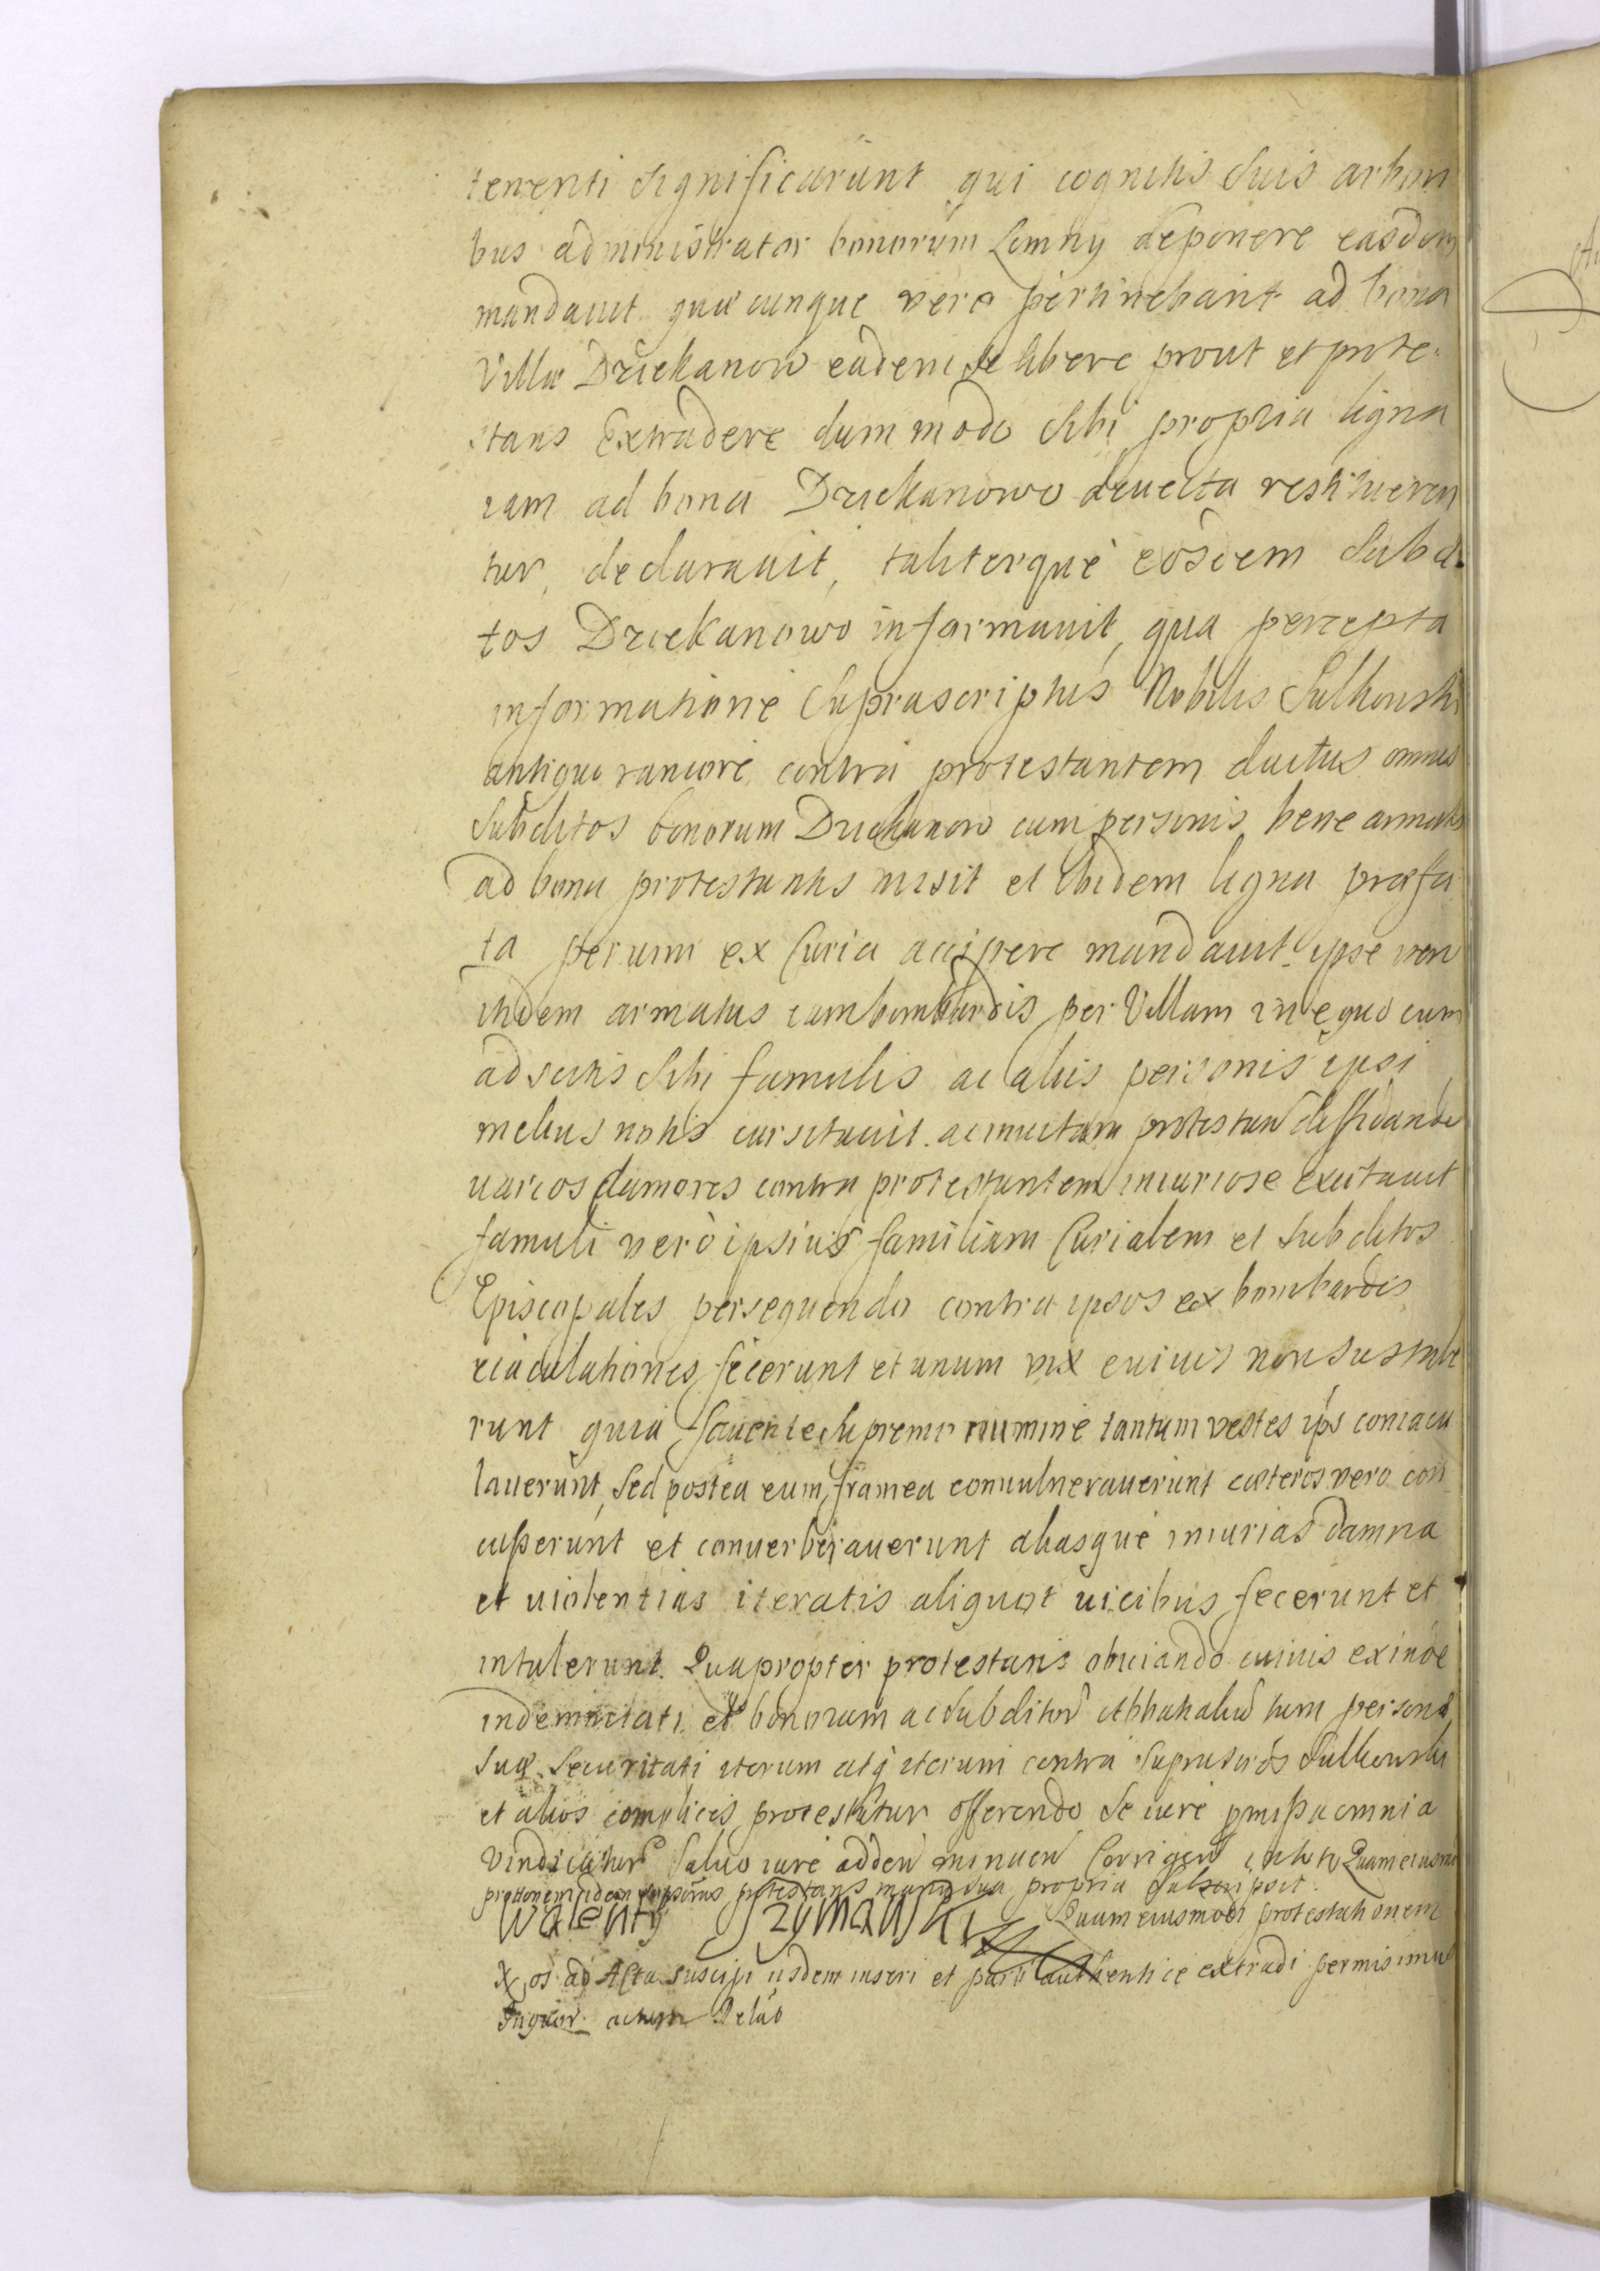 tenenti significarunt qui cognitis suis arbori
bus administrator bonorum Łomny deponere easdem
mandavit quæcunque vero pertinebant ad bona
Villæ Dziekanow eadem se libere prout et prote-
stans Extradere dummodo sibi propria ligna
iam ad bona Dziekanowo devecta restitueren
tur, declaravit, taliterque eosdem subdi
tos Dziekanowo informavit, qua percepta
informatione suprascriptus Nobilis Sulkowski
antiquo rancore contra protestantem ductus omnes
subditos bonorum Dziekanow cum personis bene armatis
ad bona protestantis misit et ibidem ligna præfa
ta per vim ex Curia accipere mandavit. ipse vero
itidem armatus cum bombardis per Villam in equo cum
adscitis sibi famulis ac aliis personis ipsi
melius notis cursitavit. ac invictam protestan diffidando
varios clamores contra protestantem iniuriose excitavit
famuli vero ipsius familiam Curialem et subditos
Episcopales persequendo contra ipsos ex bombardis
eiaculationes fecerunt et unum vix e vivis non sustule
runt quia favente supremo numine tantum vestes ips coniacu
laverunt, sed postea eum framea convulneraverunt cæteros vero con
cusserunt et converberaverunt aliasque iniurias damna
et violentias iteratis aliquot vicibus fecerunt et
intulerunt. Quapropter protestans obviando cuivis exinde
indemnitati et bonorum ac subditor tum personæ
suæ securitati iterum atq iterum contra suprascros Sulkowski
et alios complices protestatur offerendo se iure pmissa omnia
vindicatur salvo iure adden minuen Corrigen Quam eiusmo
prottonem idem protestans manu sua propria subscripsit.
Walenty Szymański Quam eiusmodi protestationem
X os ad Acta suscipi iisdem inseri et parti authentice extradi permisimus
actum